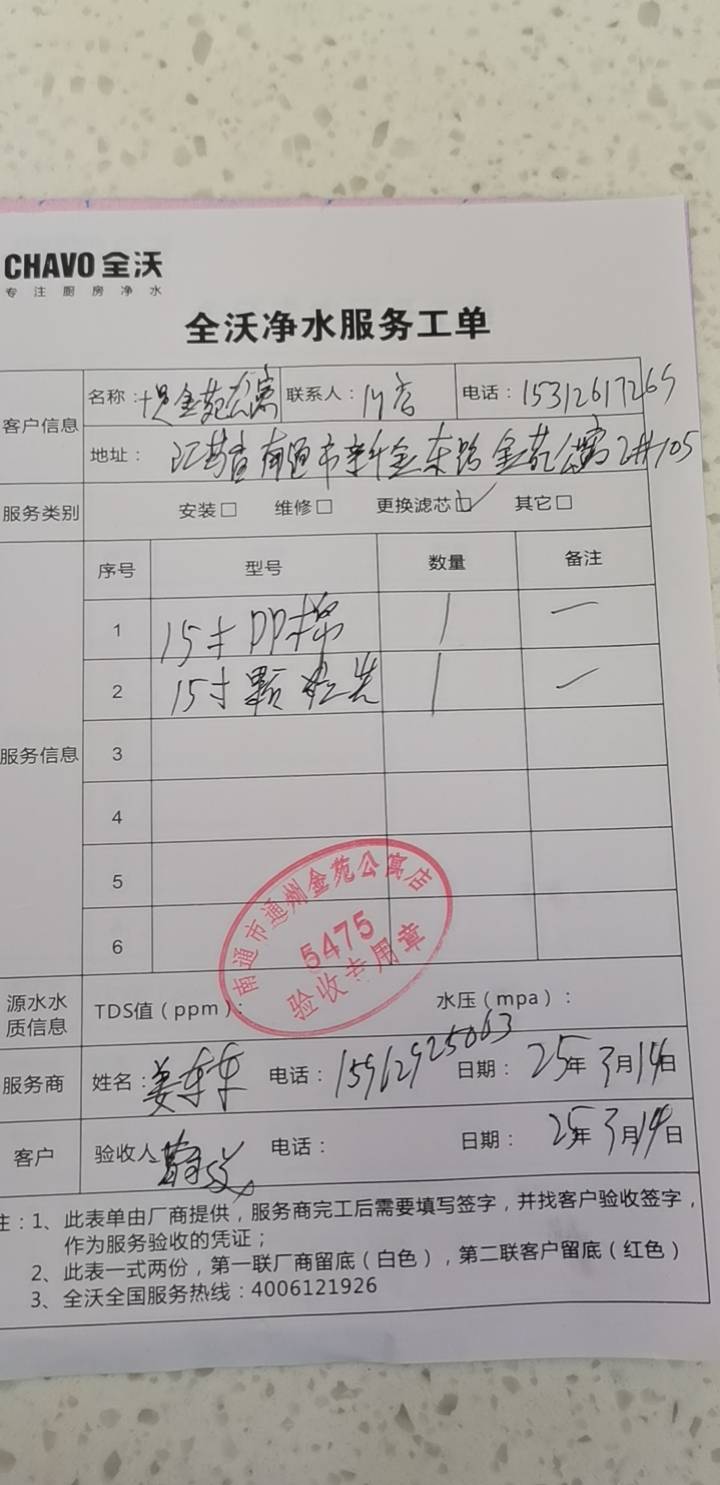 CHAVO 全沃
专注厨房净水
全沃净水服务工单
客户信息 名称：足金苑公寓 联系人： 电话：15312617265
地址：江苏省南通市 金东路金苑公寓2#105
服务类别 安装□ 维修□ 更换滤芯☑ 其它□
服务信息 序号 型号 数量 备注
1 15寸PP棉 1 一
2 15寸颗粒炭 1 一
3
4
5
6
南通市通州金苑公寓店
5475
验收专用章
源水水质信息 TDS值（ppm）： 水压（mpa）：
服务商 姓名：姜车车 电话：15962925063 日期：25年3月14日
客户 验收人 电话： 日期：25年3月14日
注：1、此表单由厂商提供，服务商完工后需要填写签字，并找客户验收签字，
作为服务验收的凭证；
2、此表一式两份，第一联厂商留底（白色），第二联客户留底（红色）
3、全沃全国服务热线：4006121926